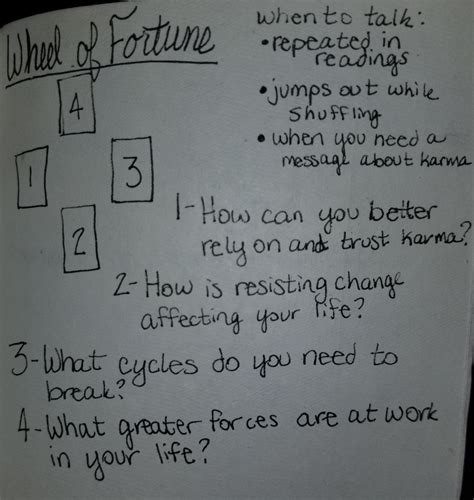 Wheel of Fortune
4
1
3
2
when to talk:
• repeated in
readings
• jumps out while
shuffling
• when you need a
message about karma
1- How can you better
rely on and trust karma?
2- How is resisting change
affecting your life?
3- What cycles do you need to
break?
4- What greater forces are at work
in your life?